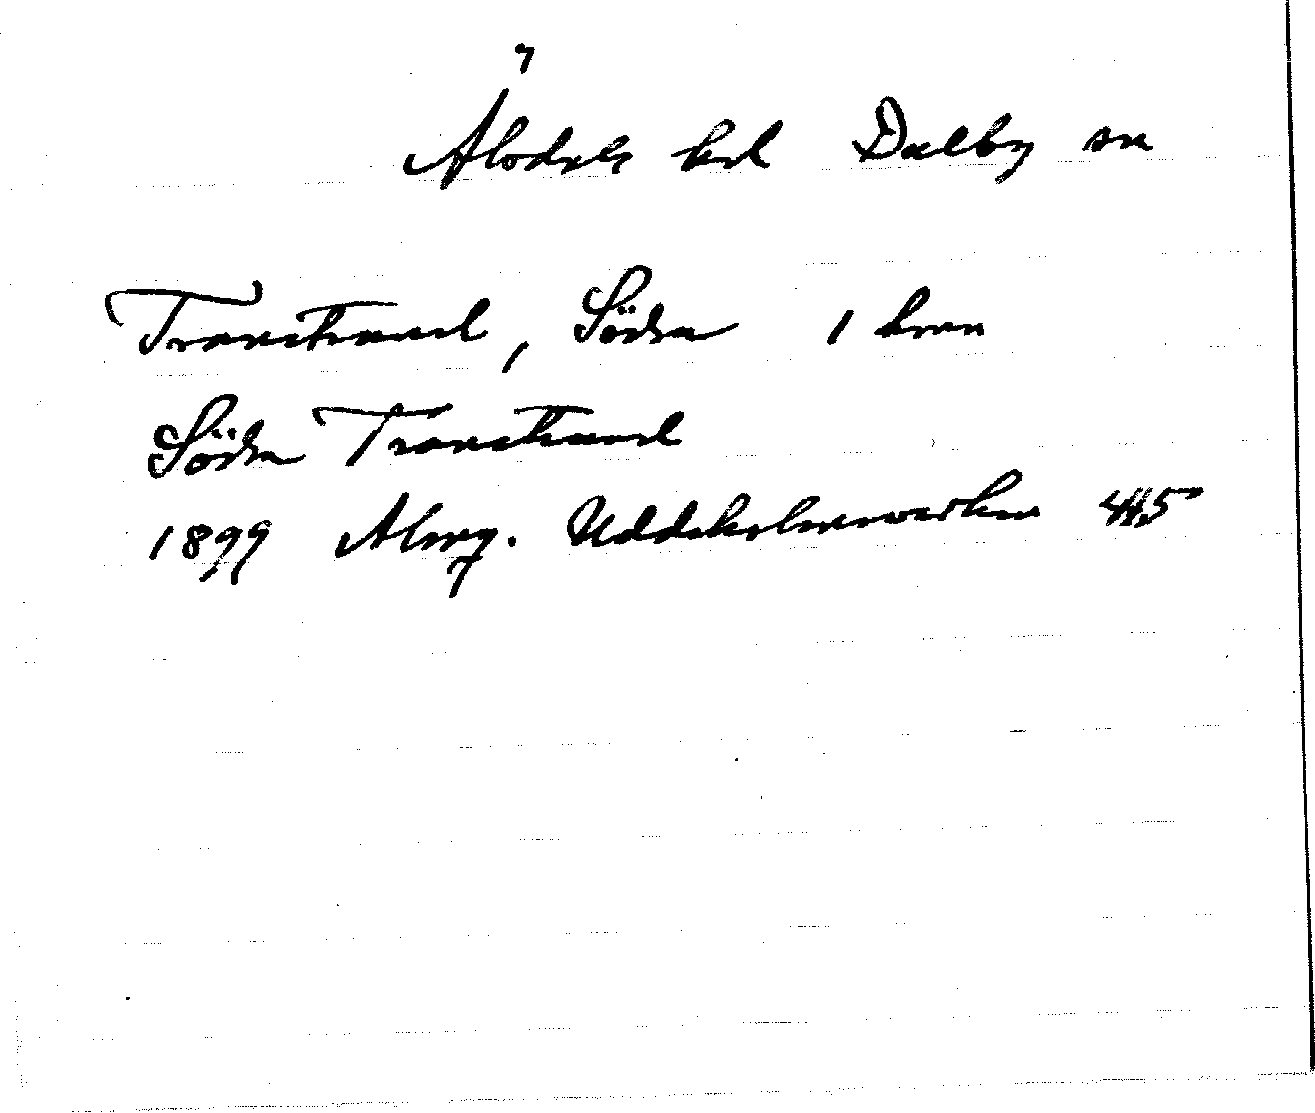 7
Älvdals hd Dalby sn
Transtrand, Södra 1 hmn
Södra Transtrand
1899 Almq. Uddeholmsverken 445
7